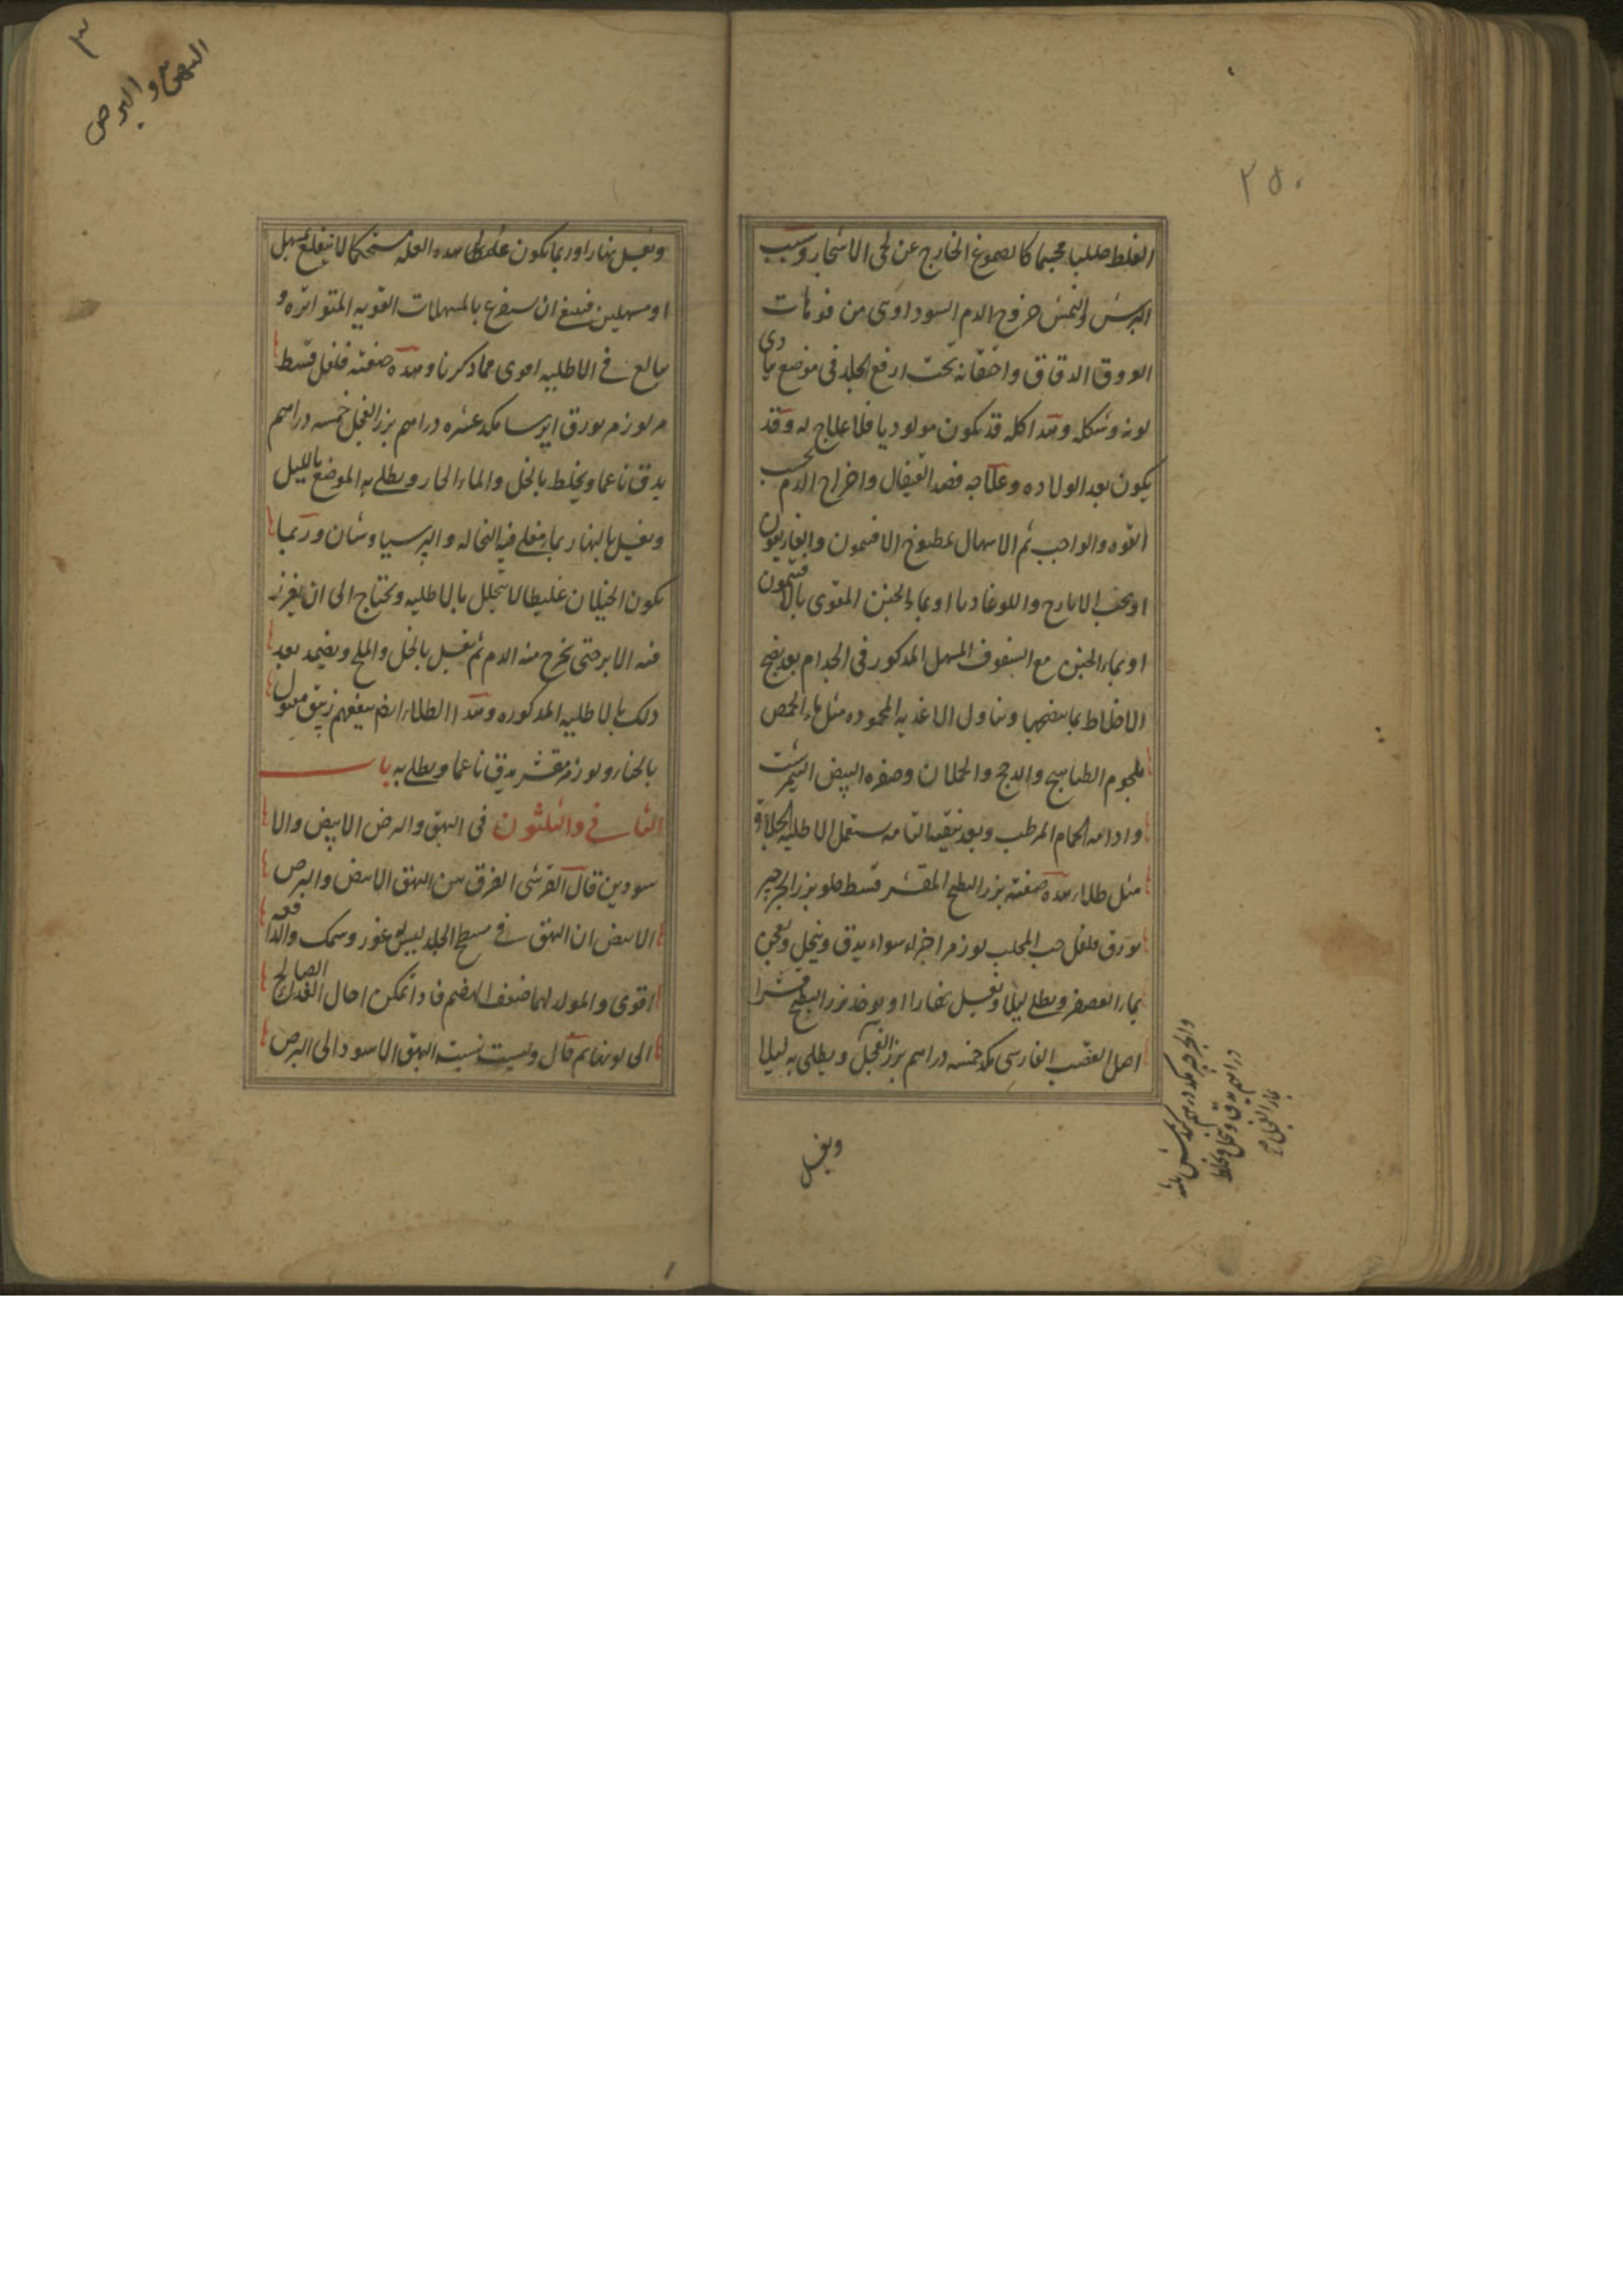 ٢٥٠
الغلط صلبا محجما كالصموغ الخارج عن لحى الاشجار وسبب
البرش والنمش خروج الدم السوداوى من فوهات
العروق الدقاق واحتقانه تحت ارفع الجلد فى موضع يبادى
لونه وشكله وهذا كله قد يكون مولوديا فلا علاج له وقد
يكون بعد الولاده وعلاجه فصد القيفال واخراج الدم بحسب
القوه والواجب ثم الاسهال بمطبوخ الافتيمون والغاريقون
او بحب الايارج واللوغاديا او بماء الجبن المقوى بالافتيمون
او بماء الجبن مع السفوف المسهل المذكور فى الجذام بعد نضج
الاخلاط بما ينضجها وتناول الاغذيه المحموده مثل ماء الحمص
بلحوم الطياهيج والدجج والحملان وصفره البيض النيمرشت
وادامه الحمام المرطب وبعد تنقيه التامه يستعمل الاطليه الجلاءه
مثل طلاء هذه صفته بزر البطيخ المقشر قسط حلو بزر الجرجير
بورق فلفل حب المحلب لوز مر اجزاء سواء يدق وينخل ويعجن
بماء العصفر ويطلى ليلا ويغسل نهارا او يوخذ بزر البطيخ مقشرا
اصل القصب الفارسى مكد خمسه دراهم بزر الفجل ويطلى به ليلا
دراهم يدق وينخل ويخلط
ويغسل
البهق والبرص
ويغسل نهارا وربما يكون غلظ هذه العله مستحكما لا ينقلع بمسهل
او مسهلين فينبغى ان يستفرغ بالمسهلات القويه المتواتره و
يبالغ فى الاطليه اقوى مما ذكرنا وهذه صفته فلفل قسط
مر لوز مر بورق ايرسا مكد عشره دراهم بزر الفجل خمسه دراهم
يدق ناعما ويخلط بالخل والماء الحار ويطلى به الموضع بالليل
ويغسل بالنهار بماء مغلى فيه النخاله والبرسياوشان وربما
يكون الخيلان غليظا لا يتحلل بالاطليه ويحتاج الى ان يغرز
فيه الابر حتى يخرج منه الدم ثم يغسل بالخل والملح ويضمد بعد
ذلك بالاطليه المذكوره وهذا الطلاء ايضا ينفعهم زيبق مقتول
بالحناء ولوز مر مقشر يدق ناعما ويطلى به باب
الثانى والثلثون فى البهق والبرص الابيض والا
سودين قال القرشى الفرق بين البهق الابيض والبرص
الابيض ان البهق فى سطح الجلد ليس له غور وسمك والدافعه
اقوى والمولد لهما ضعف الهضم فاذا تمكن احال الغذاء الصالح
الى لونها ثم قال وليست نسبت البهق الاسود الى البرص